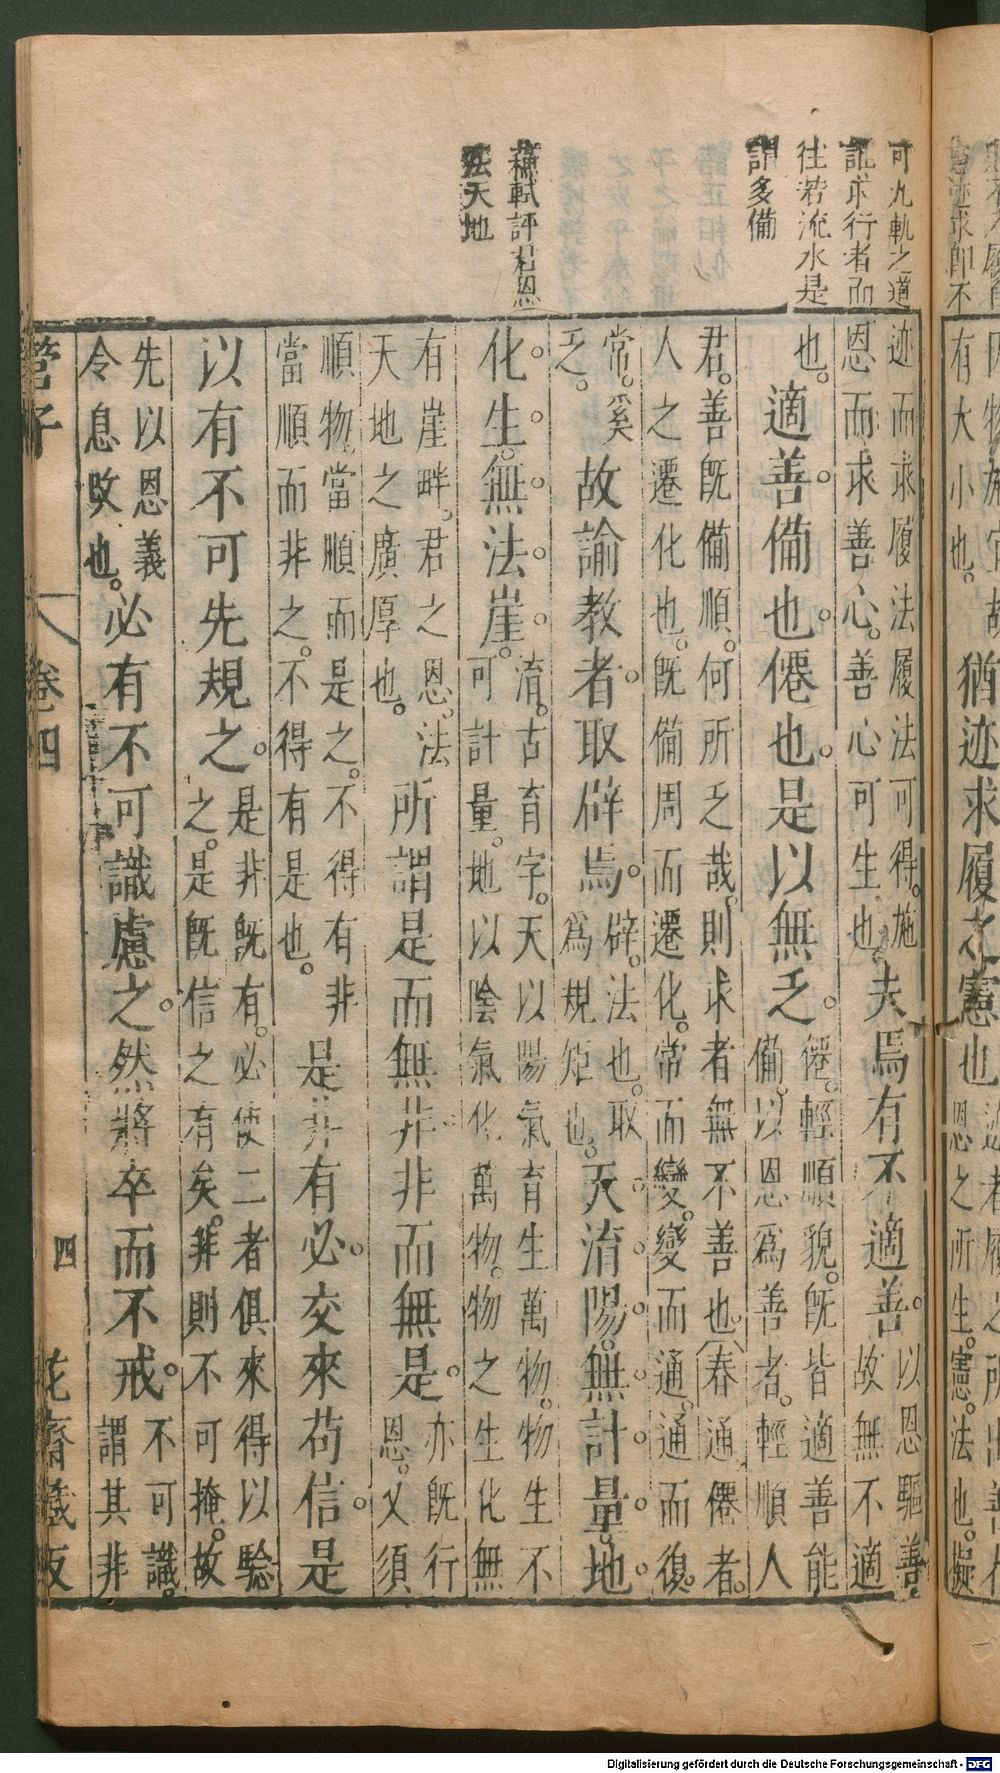 可九軌之道
記求行者而
往若流水是
謂多備
蘇軾評君恩
法天地
迹而求履法履法可得施
恩而求善心善心可生也
夫焉有不適善
以恩驅善
故無不適
也
適善備也僊也是以無乏
僊輕順貌既皆適善能
備以恩爲善者輕順人
君善既備順何所乏哉則求者無不善也春通僊者
人之遷化也既備周而遷化常而變變而通通而復
常奚
乏
故諭教者取辟焉
辟法也取
爲規矩也
天淯陽無計量地
化生無法崖
淯古育字天以陽氣育生萬物物生不
可計量地以陰氣化萬物物之生化無
有崖畔君之恩法
天地之廣厚也
所謂是而無非非而無是
亦既行
恩又須
順物當順而是之不得有非
當順而非之不得有是也
是非有必交來苟信是
以有不可先規之
是非既有必使二者俱來得以驗
之是既信之有矣非則不可掩故
先以恩義
令息敗也
必有不可識慮之然將卒而不戒
不可識
謂其非
管子
卷四
四
花齋藏板
有大小也
猶迹求履之憲也
恩之所生憲法也擬
Digitalisierung gefördert durch die Deutsche Forschungsgemeinschaft - DFG